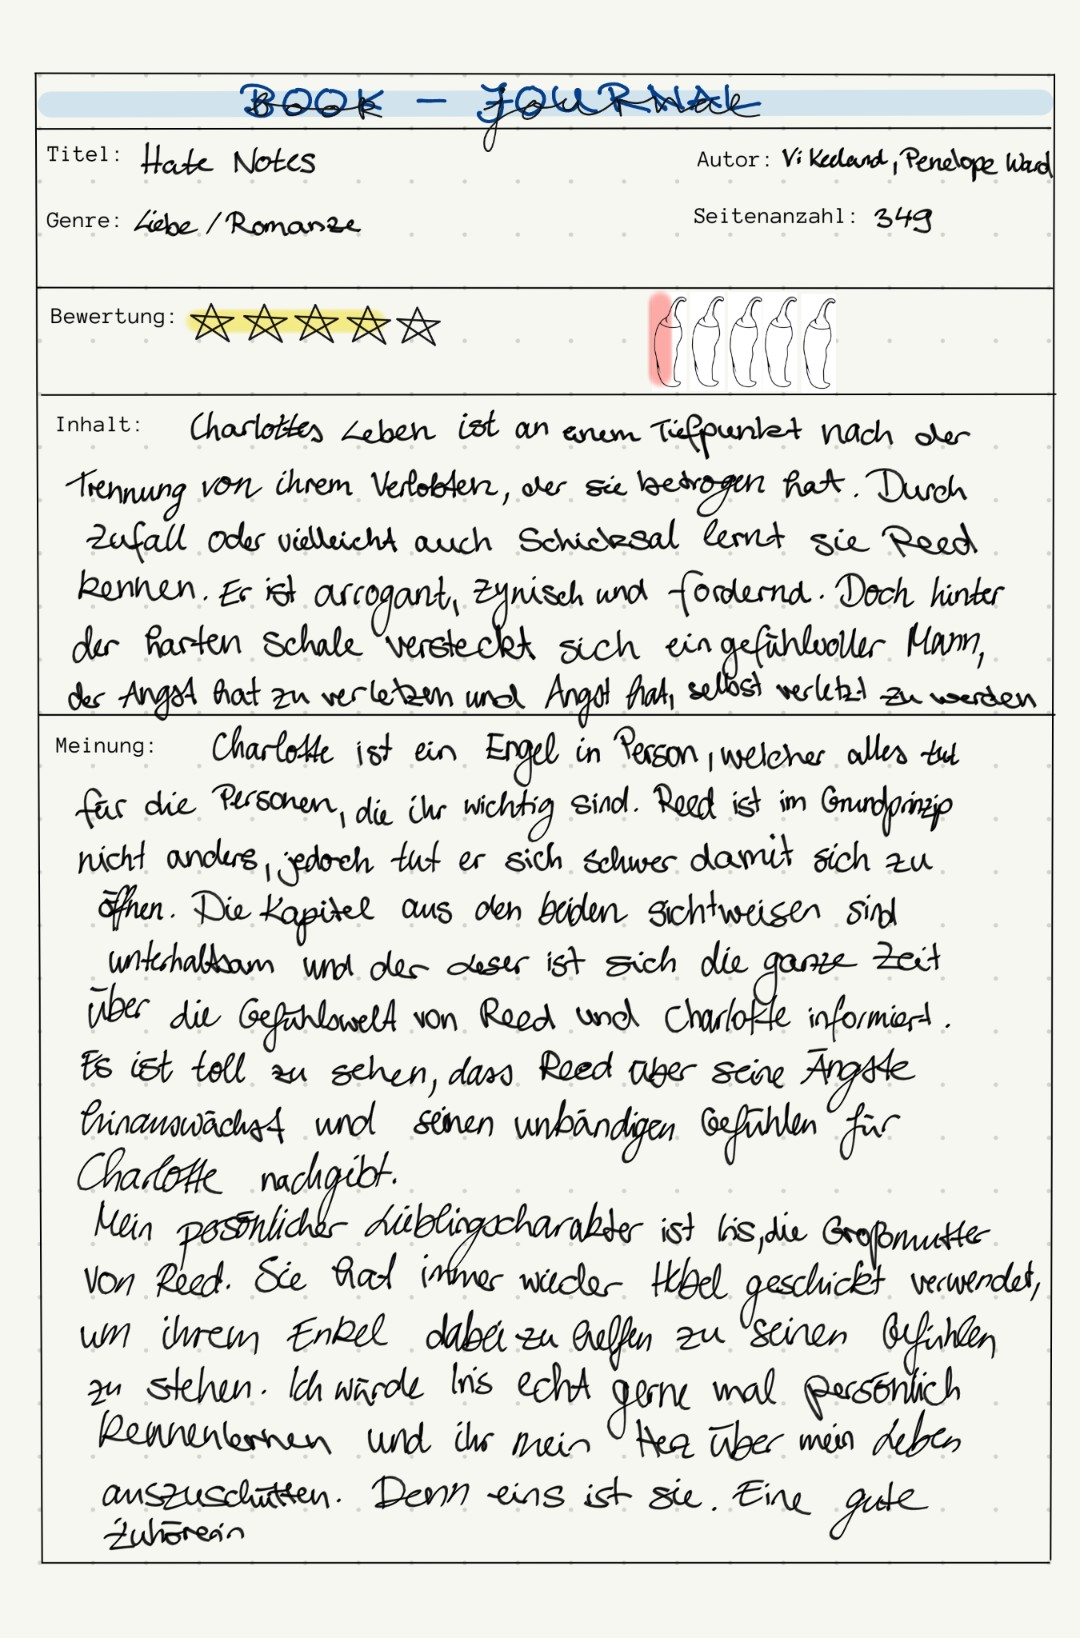 BOOK - JOURNAL
Titel: Hate Notes
Autor: Vi Keeland, Penelope Ward
Genre: Liebe / Romanze
Seitenanzahl: 349
Bewertung:
Inhalt: Charlottes Leben ist an einem Tiefpunkt nach der
Trennung von ihrem Verlobten, der sie betrogen hat. Durch
Zufall oder vielleicht auch Schicksal lernt sie Reed
kennen. Er ist arrogant, zynisch und fordernd. Doch hinter
der harten Schale versteckt sich ein gefühlvoller Mann,
der Angst hat zu verletzen und Angst hat, selbst verletzt zu werden
Meinung: Charlotte ist ein Engel in Person, welcher alles tut
für die Personen, die ihr wichtig sind. Reed ist im Grundprinzip
nicht anders, jedoch tut er sich schwer damit sich zu
öffnen. Die Kapitel aus den beiden Sichtweisen sind
unterhaltsam und der Leser ist sich die ganze Zeit
über die Gefühlswelt von Reed und Charlotte informiert.
Es ist toll zu sehen, dass Reed über seine Ängste
hinauswächst und seinen unbändigen Gefühlen für
Charlotte nachgibt.
Mein persönlicher Lieblingscharakter ist Iris, die Großmutter
von Reed. Sie hat immer wieder Hebel geschickt verwendet,
um ihrem Enkel dabei zu helfen zu seinen Gefühlen
zu stehen. Ich würde Iris echt gerne mal persönlich
kennenlernen und ihr mein Herz über mein Leben
auszuschütten. Denn eins ist sie. Eine gute
Zuhörerin